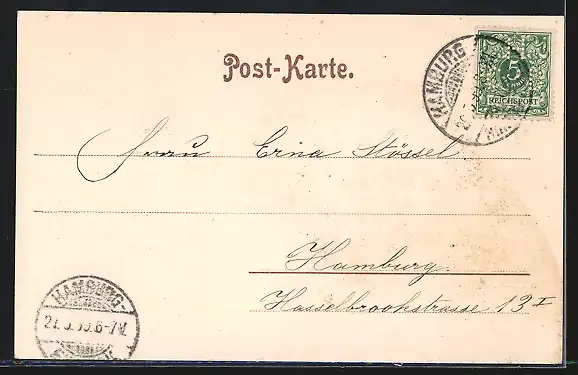 Post-Karte.
HAMBURG
5
REICHSPOST
Frau Erna Stössel
Hamburg.
Hasselbrookstrasse 13 I
HAMBURG-
6-7N.